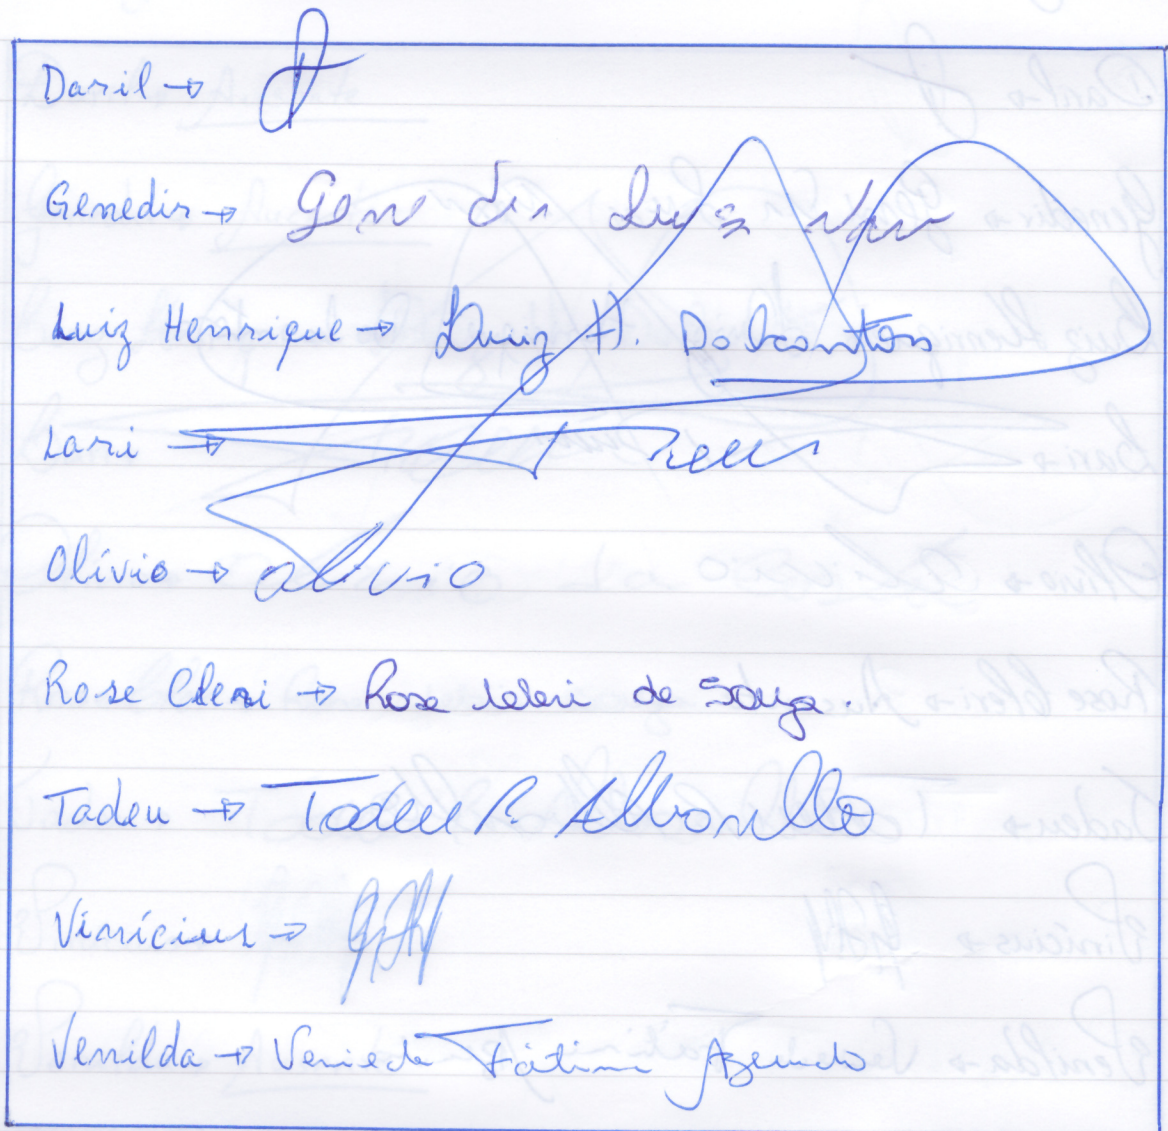 Daril →
Genedir → Genedir Luiz
Luiz Henrique → Luiz H. Dalcanton
Lari →
Olívio → Olivio
Rose Cleri → Rose Cleri de Souza.
Tadeu → Tadeu
Vinícius →
Venilda → Fátima Azevedo